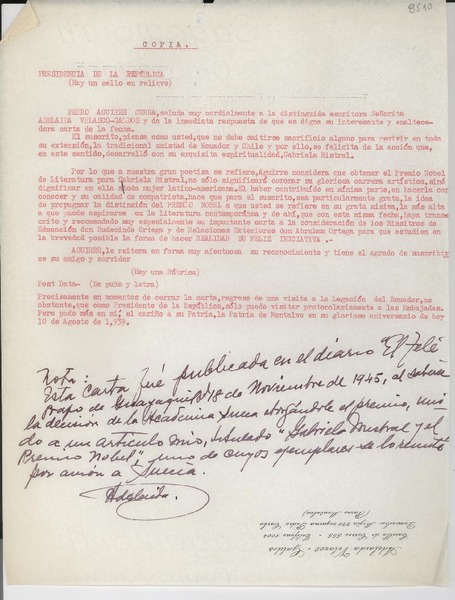 8510
COPIA.
PRESIDENCIA DE LA REPÚBLICA
(Hay un sello en relieve)
PEDRO AGUIRRE CERDA, saluda muy cordialmente a la distinguida escritora Señorita
ADELAIDA VELASCO-GALDOS y da la inmediata respuesta de que es digna su interesante y enaltece-
dora carta de la fecha.
El suscrito, piensa como usted, que no debe omitirse sacrificio alguno para revivir en toda
su extensión, la tradicional amistad de Ecuador y Chile y por ello, se felicita de la acción que,
en este sentido, desarrolló con su exquisita espiritualidad, Gabriela Mistral.
Por lo que a nuestra gran poetisa se refiere, Aguirre considera que obtener el Premio Nobel
de Literatura para Gabriela Mistral, no sólo significará coronar su gloriosa carrera artística, sino
dignificar en ella a toda mujer latino-americana. El haber contribuido en mínima parte, en hacerla
conocer y su calidad de compatriota, hace que para el suscrito, sea particularmente grata, la idea
de propugnar la distinción del PREMIO NOBEL a que usted se refiere en su grata misiva, la más alta
a que puede aspirarse en la literatura contemporánea y de ahí, que con esta misma fecha, haya trans-
crito y recomendado muy especialmente su importante carta a la consideración de los Ministros de
Educación don Rudecindo Ortega y de Relaciones Exteriores don Abraham Ortega para que estudien en
la brevedad posible la forma de hacer REALIDAD SU FELIZ INICIATIVA.
AGUIRRE, le reitera en forma muy afectuosa su reconocimiento y tiene el agrado de suscribirse
su amigo y servidor
(Hay una Rúbrica)
Post Data- (De puño y letra)
Precisamente en momentos de cerrar la carta, regreso de una visita a la Legación del Ecuador, no
obstante, que como Presidente de la República, sólo puedo visitar protocolariamente a las Embajadas.
Pero pudo más en mí, el cariño a su Patria, la Patria de Montalvo en su glorioso aniversario de hoy
10 de Agosto de 1,939.
Nota:
Esta Carta fué publicada en el diario "El Telé
grafo de Guayaquil" 18 de Noviembre de 1945, al saberse
la decisión de la Academia Sueca otorgándole el premio, uni
do a un articulo mío, titulado "Gabriela Mistral y el
Premio Nobel", uno de cuyos ejemplares se lo remití
por avión a Suecia.
Adelaida.
Adelaida Velasco Galdós
Casilla de Correo 855 - Teléfono
Domicilio: Mejía